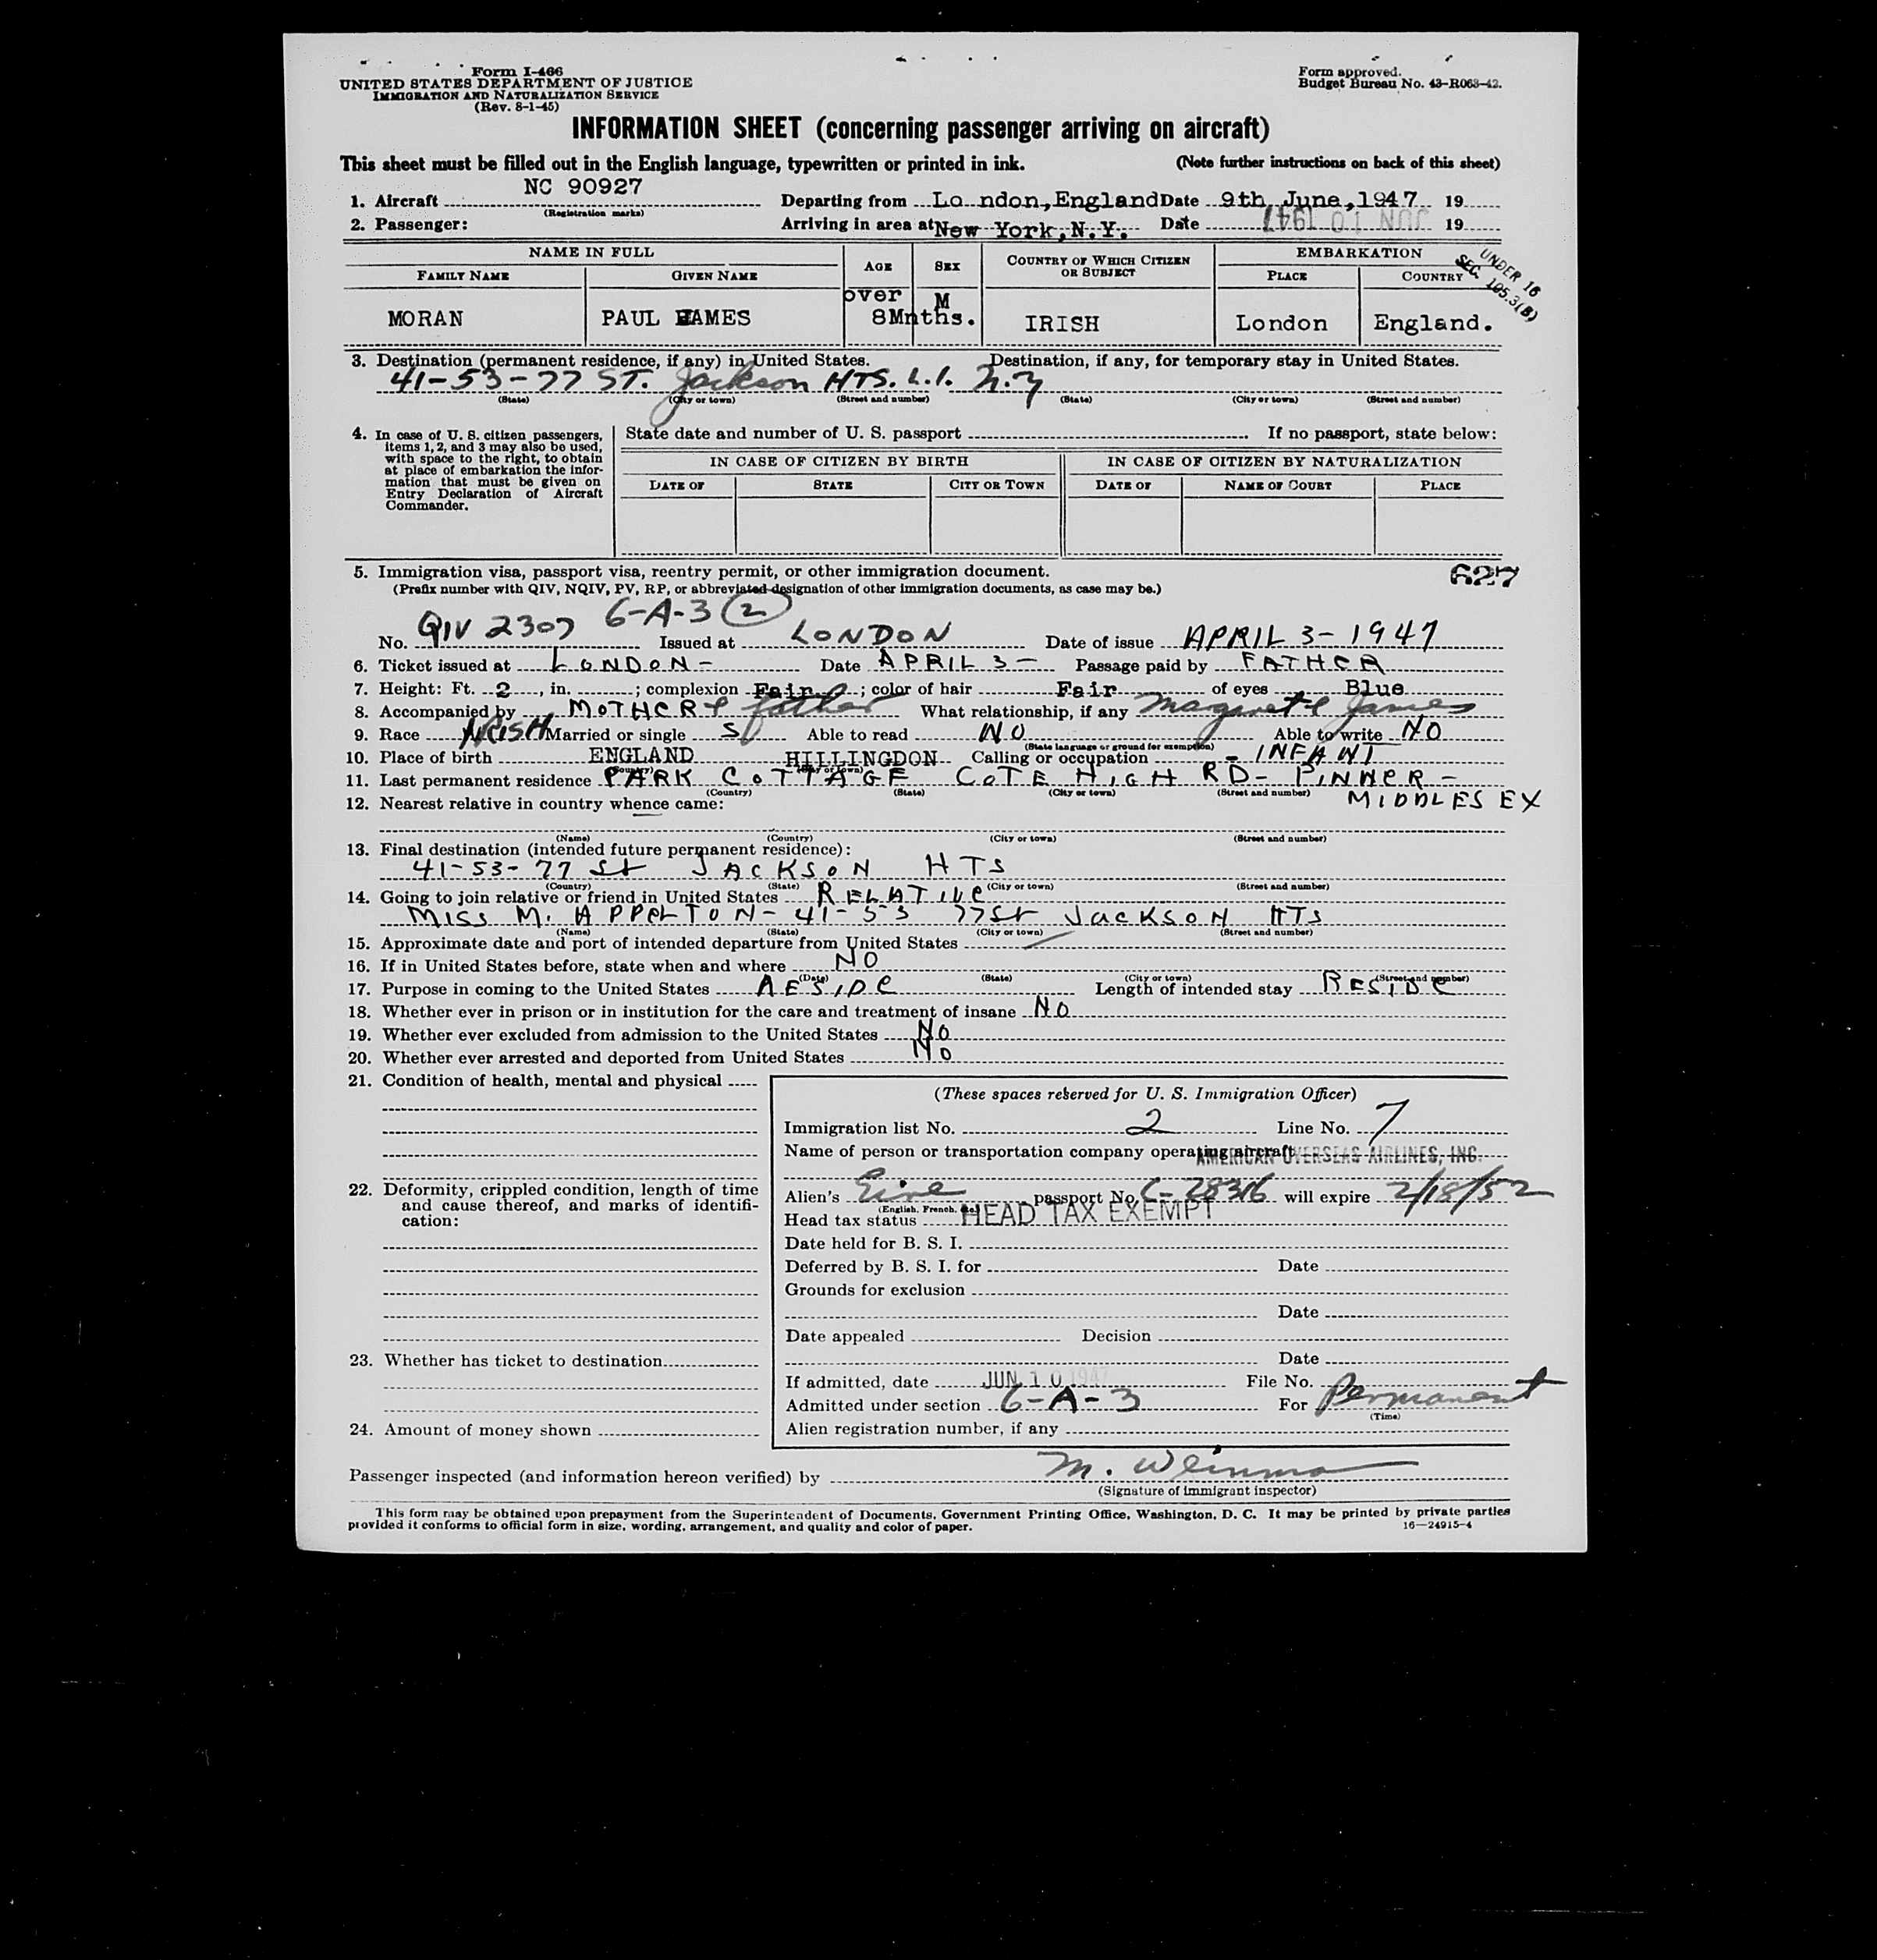 Form I-466
UNITED STATES DEPARTMENT OF JUSTICE
IMMIGRATION AND NATURALIZATION SERVICE
(Rev. 8-1-45)
Form approved.
Budget Bureau No. 43-R063-42.
INFORMATION SHEET (concerning passenger arriving on aircraft)
This sheet must be filled out in the English language, typewritten or printed in ink. (Note further instructions on back of this sheet)
1. Aircraft NC 90927 Departing from Lo ndon, England Date 9th June, 1947 19
(Registration marks)
2. Passenger: Arriving in area at New York, N.Y. Date JUN 10 1947 19
NAME IN FULL AGE SEX COUNTRY OF WHICH CITIZEN OR SUBJECT EMBARKATION
FAMILY NAME GIVEN NAME PLACE COUNTRY
UNDER 16
SEC. 105.3(B)
MORAN PAUL JAMES over 8Mnths. M IRISH London England.
3. Destination (permanent residence, if any) in United States. Destination, if any, for temporary stay in United States.
41-53-77 ST. Jackson HTS. L.I. N.Y
(State) (City or town) (Street and number) (State) (City or town) (Street and number)
4. In case of U. S. citizen passengers, items 1, 2, and 3 may also be used, with space to the right, to obtain at place of embarkation the information that must be given on Entry Declaration of Aircraft Commander.
State date and number of U. S. passport If no passport, state below:
IN CASE OF CITIZEN BY BIRTH IN CASE OF CITIZEN BY NATURALIZATION
DATE OF STATE CITY OR TOWN DATE OF NAME OF COURT PLACE
5. Immigration visa, passport visa, reentry permit, or other immigration document. 627
(Prefix number with QIV, NQIV, PV, RP, or abbreviated designation of other immigration documents, as case may be.)
6-A-3 (2)
No. QIV 2307 Issued at LONDON Date of issue APRIL 3-1947
6. Ticket issued at LONDON- Date APRIL 3- Passage paid by FATHER
7. Height: Ft. 2, in. ; complexion Fair; color of hair Fair of eyes Blue
8. Accompanied by MOTHER & father What relationship, if any Margaret & James
9. Race IRISH Married or single S Able to read NO Able to write NO
(State language or ground for exemption)
10. Place of birth ENGLAND HILLINGDON Calling or occupation - INFANT
(Country) (City or town)
11. Last permanent residence PARK COTTAGE COTE HIGH RD- PINNER-
MIDDLESEX
(Country) (State) (City or town) (Street and number)
12. Nearest relative in country whence came:
(Name) (Country) (City or town) (Street and number)
13. Final destination (intended future permanent residence):
41-53-77 St JACKSON HTS
(Country) (State) (City or town) (Street and number)
14. Going to join relative or friend in United States RELATIVE
MISS M. APPELTON- 41-53 77 St JACKSON HTS
(Name) (State) (City or town) (Street and number)
15. Approximate date and port of intended departure from United States
16. If in United States before, state when and where NO
(Date) (State) (City or town) (Street and number)
17. Purpose in coming to the United States RESIDE Length of intended stay RESIDE
18. Whether ever in prison or in institution for the care and treatment of insane NO
19. Whether ever excluded from admission to the United States NO
20. Whether ever arrested and deported from United States NO
21. Condition of health, mental and physical
22. Deformity, crippled condition, length of time and cause thereof, and marks of identification:
23. Whether has ticket to destination
24. Amount of money shown
(These spaces reserved for U. S. Immigration Officer)
Immigration list No. 2 Line No. 7
Name of person or transportation company operating aircraft AMERICAN OVERSEAS AIRLINES, INC.
Alien's Eire passport No. C-28316 will expire 2/18/52
(English, French, etc.)
Head tax status HEAD TAX EXEMPT
Date held for B. S. I.
Deferred by B. S. I. for Date
Grounds for exclusion
Date
Date appealed Decision
Date
If admitted, date JUN 10 1947 File No.
Admitted under section 6-A-3 For Permanent
(Time)
Alien registration number, if any
Passenger inspected (and information hereon verified) by M.
(Signature of immigrant inspector)
This form may be obtained upon prepayment from the Superintendent of Documents, Government Printing Office, Washington, D. C. It may be printed by private parties
provided it conforms to official form in size, wording, arrangement, and quality and color of paper. 16—24915-4